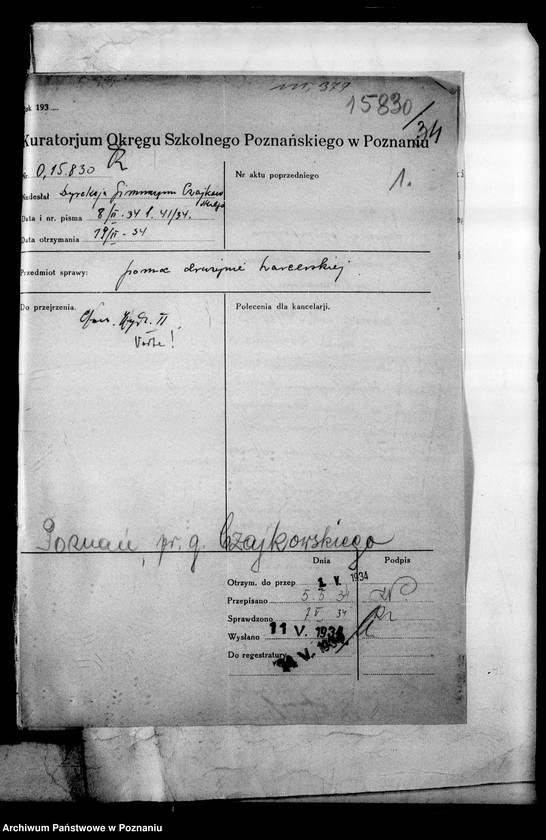 15830/34
Rok 193
Kuratorjum Okręgu Szkolnego Poznańskiego w Poznaniu
Nr. 0,15.830
Nr aktu poprzedniego
1.
Nadesłał Dyrekcja Gimnazjum Czajkowskiego
Data i nr. pisma 8/II.34 l. 41/34.
Data otrzymania 19/II.34
Przedmiot sprawy: pomoc drużynie harcerskiej.
Do przejrzenia.
Polecenia dla kancelarji.
Wydz. II
Poznań, pr. g. Czajkowskiego
Dnia Podpis
Otrzym. do przep. 1. V. 1934
Przepisano 5 5 34
Sprawdzono 7 V 34
Wysłano 11 V. 1934
Do regestratury 14 V. 1934
Archiwum Państwowe w Poznaniu